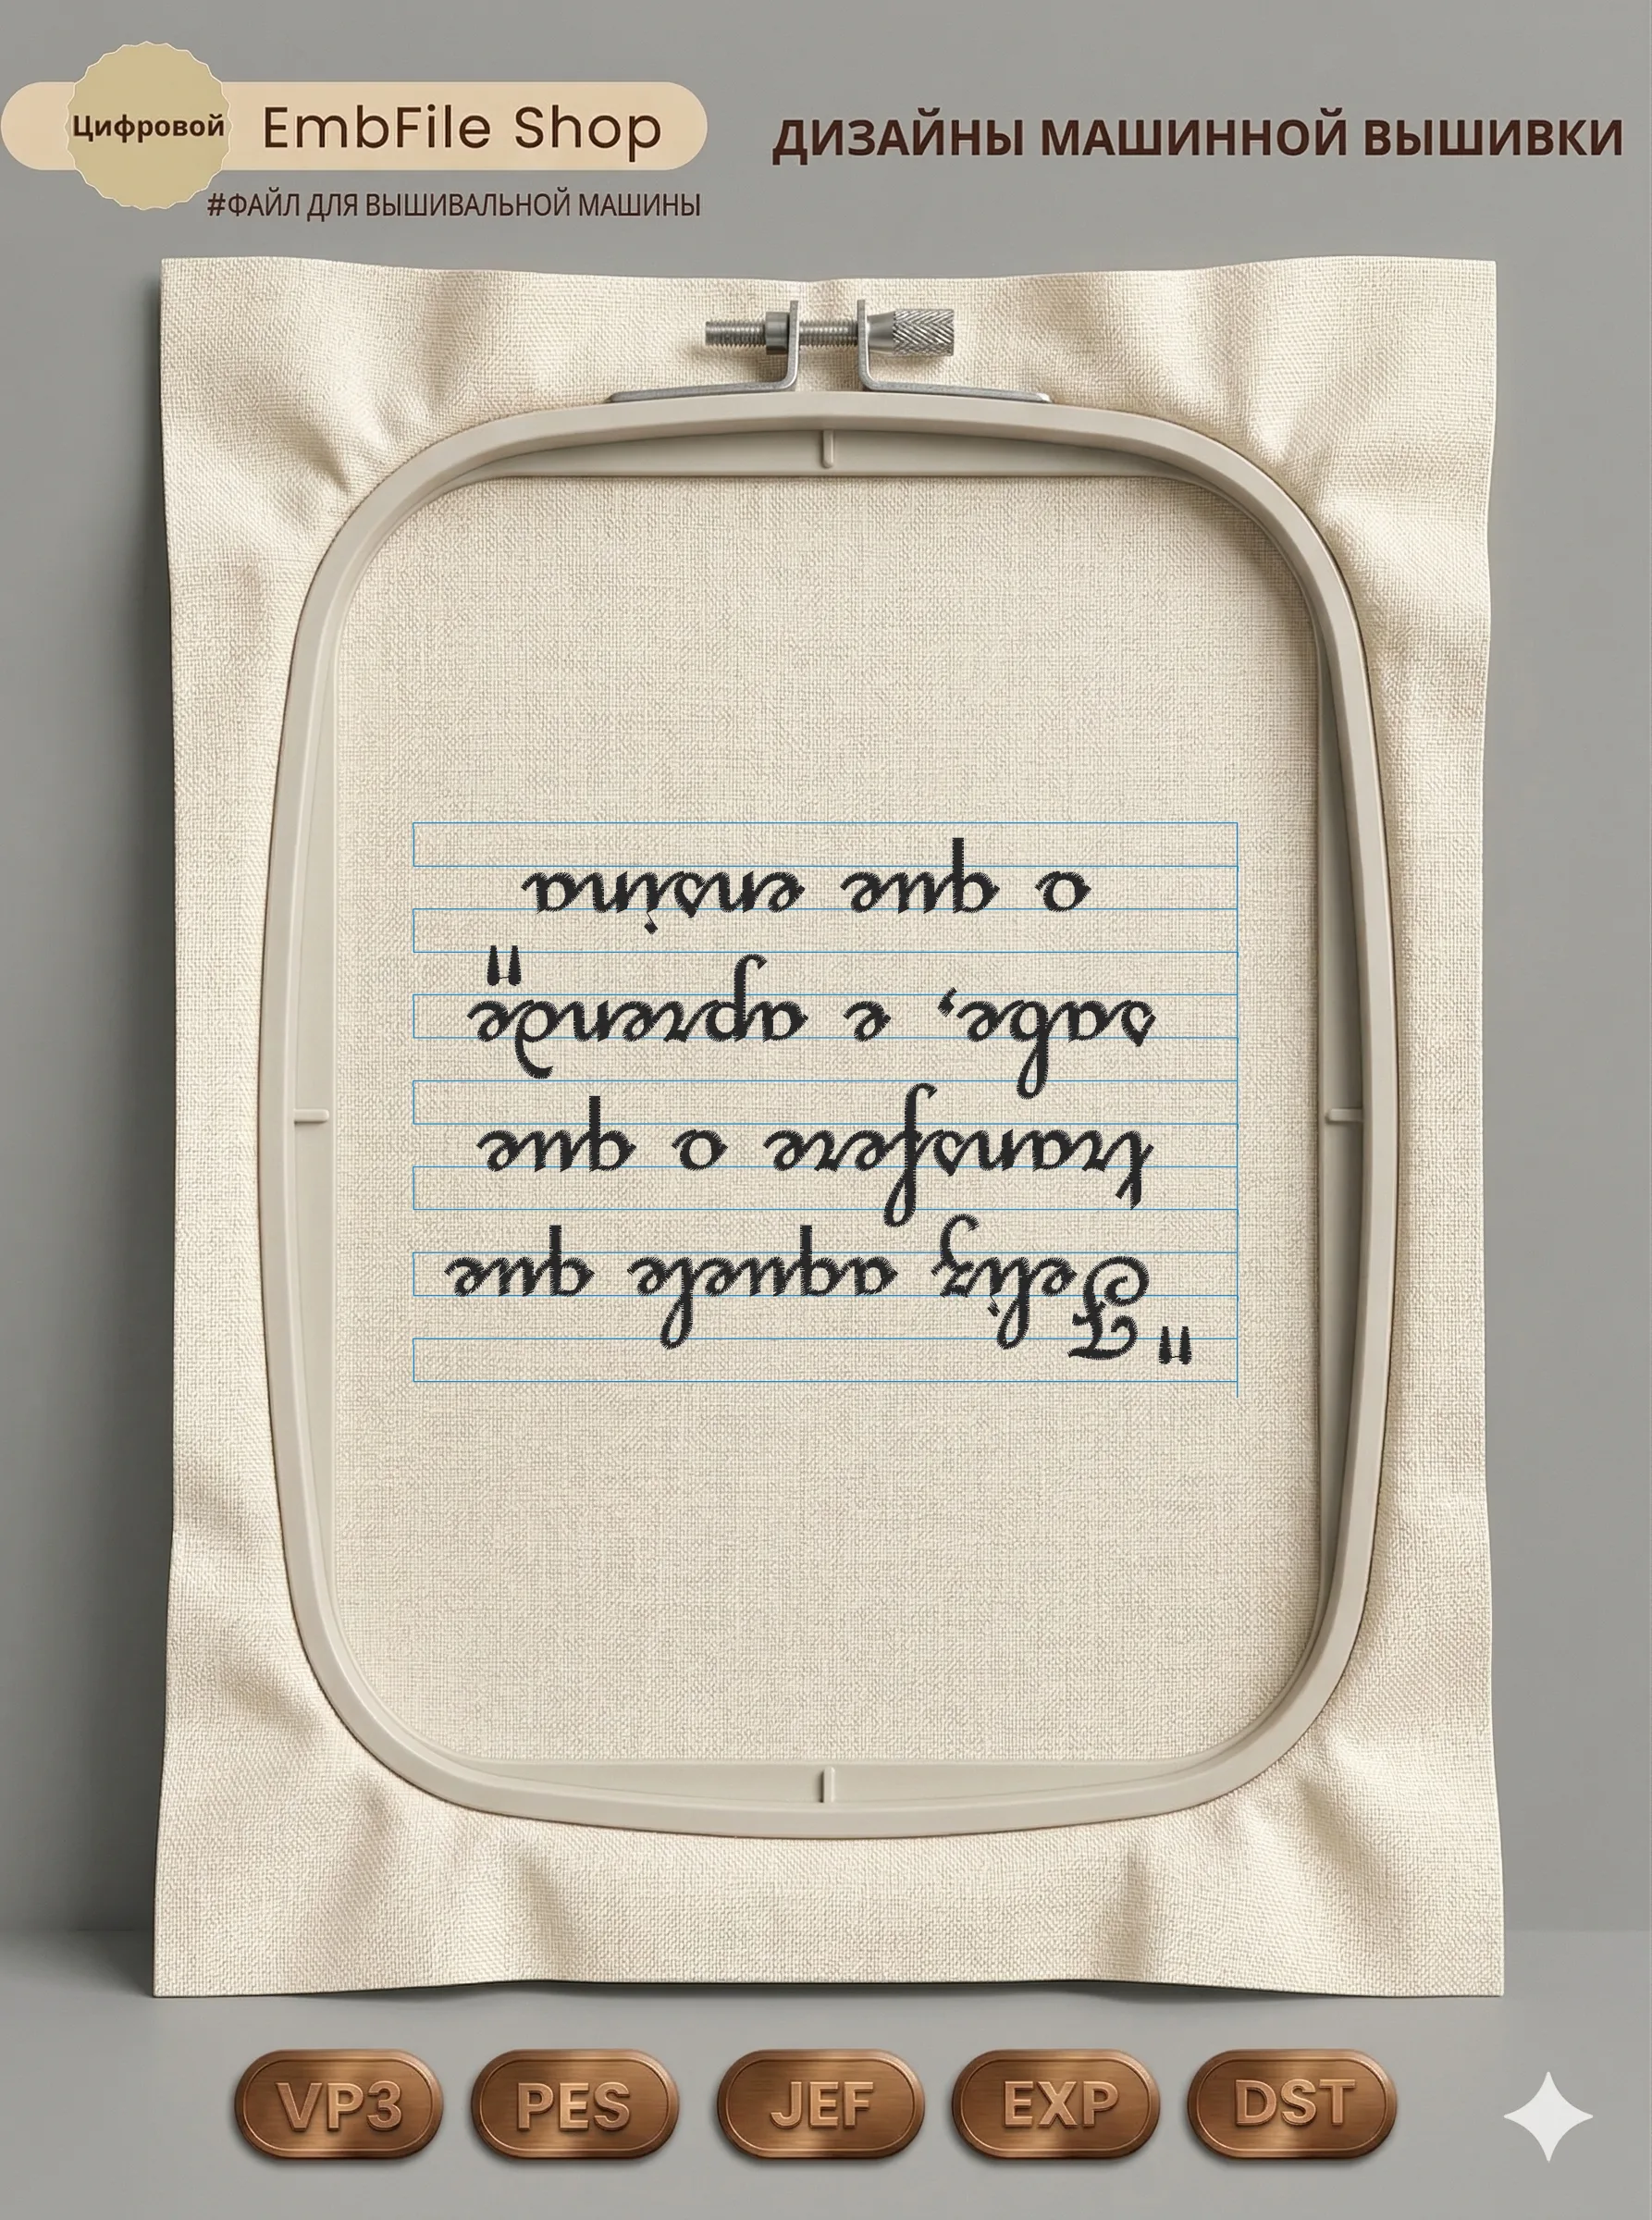 Цифровой
EmbFile Shop
#ФАЙЛ ДЛЯ ВЫШИВАЛЬНОЙ МАШИНЫ
ДИЗАЙНЫ МАШИННОЙ ВЫШИВКИ
"Feliz aquele que
transfere o que
sabe, e aprende
o que ensina"
VP3
PES
JEF
EXP
DST